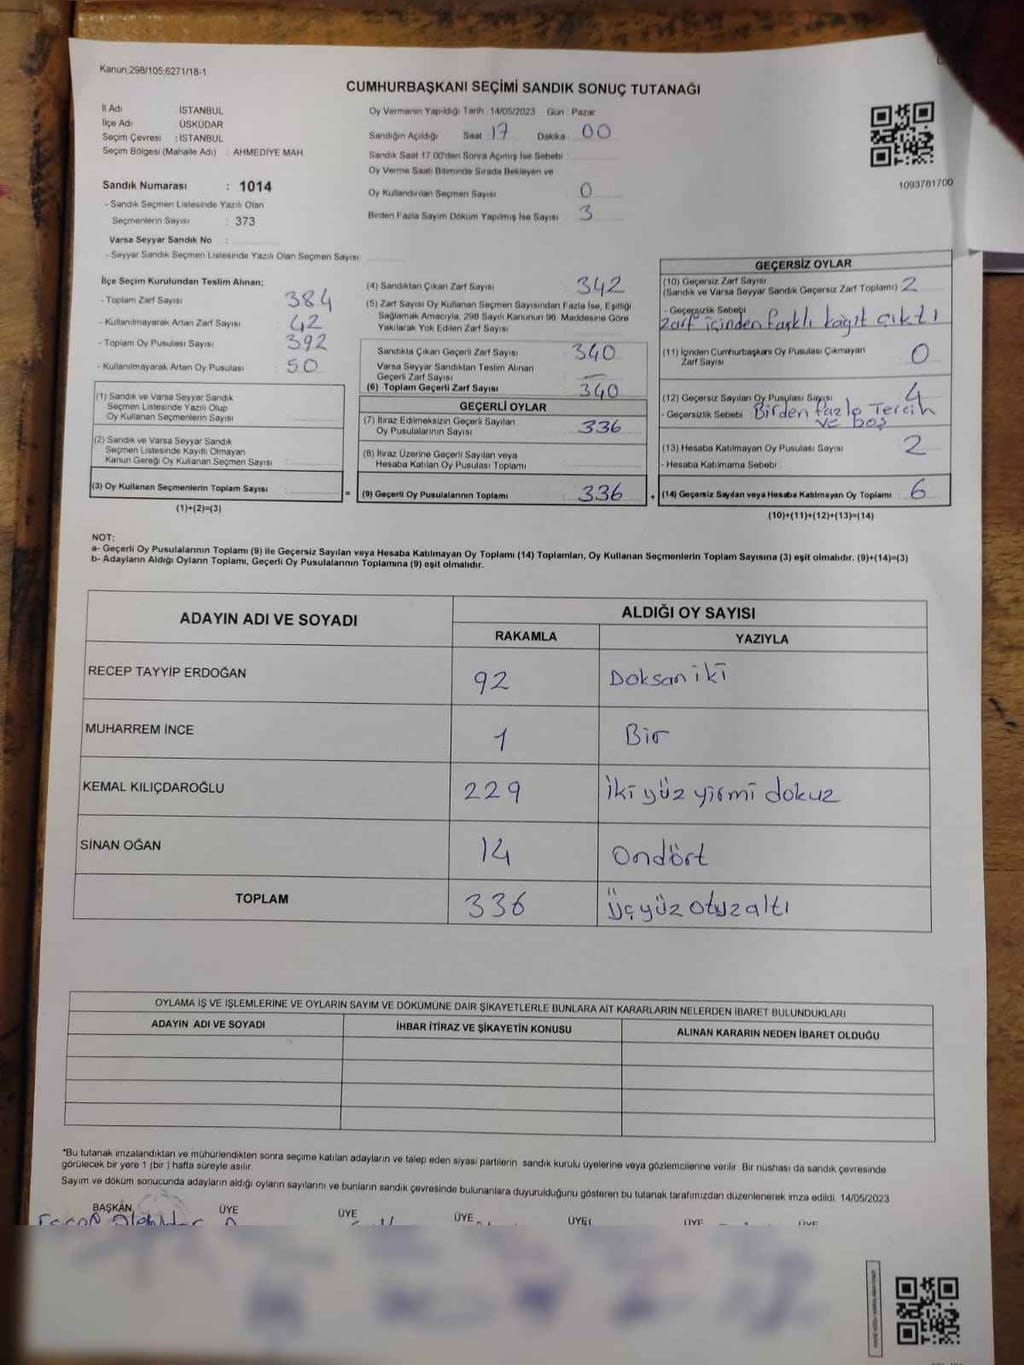 Kanun;298/105;6271/18-1
CUMHURBAŞKANI SEÇİMİ SANDIK SONUÇ TUTANAĞI
İl Adı İSTANBUL
İlçe Adı ÜSKÜDAR
Seçim Çevresi : İSTANBUL
Seçim Bölgesi (Mahalle Adı) : AHMEDİYE MAH.
Sandık Numarası : 1014
- Sandık Seçmen Listesinde Yazılı Olan
Seçmenlerin Sayısı : 373
Varsa Seyyar Sandık No :
- Seyyar Sandık Seçmen Listesinde Yazılı Olan Seçmen Sayısı:
Oy Vermenin Yapıldığı Tarih 14/05/2023 Gün Pazar
Sandığın Açıldığı Saat 17 Dakika 00
Sandık Saat 17.00'den Sonra Açılmış İse Sebebi
Oy Verme Saati Bitiminde Sırada Bekleyen ve
Oy Kullandırılan Seçmen Sayısı 0
Birden Fazla Sayım Döküm Yapılmış İse Sayısı 3
1093781700
İlçe Seçim Kurulundan Teslim Alınan;
- Toplam Zarf Sayısı 384
- Kullanılmayarak Artan Zarf Sayısı 42
- Toplam Oy Pusulası Sayısı 392
- Kullanılmayarak Artan Oy Pusulası 50
(1) Sandık ve Varsa Seyyar Sandık
Seçmen Listesinde Yazılı Olup
Oy Kullanan Seçmenlerin Sayısı
(2) Sandık ve Varsa Seyyar Sandık
Seçmen Listesinde Kayıtlı Olmayan
Kanun Gereği Oy Kullanan Seçmen Sayısı
(3) Oy Kullanan Seçmenlerin Toplam Sayısı
(1)+(2)=(3)
(4) Sandıktan Çıkan Zarf Sayısı 342
(5) Zarf Sayısı Oy Kullanan Seçmen Sayısından Fazla İse, Eşitliği
Sağlamak Amacıyla, 298 Sayılı Kanunun 98. Maddesine Göre
Yakılarak Yok Edilen Zarf Sayısı
Sandıkta Çıkan Geçerli Zarf Sayısı 340
Varsa Seyyar Sandıktan Teslim Alınan
Geçerli Zarf Sayısı —
(6) Toplam Geçerli Zarf Sayısı 340
GEÇERLİ OYLAR
(7) İtiraz Edilmeksizin Geçerli Sayılan
Oy Pusulalarının Sayısı 336
(8) İtiraz Üzerine Geçerli Sayılan veya
Hesaba Katılan Oy Pusulası Toplamı
= (9) Geçerli Oy Pusulalarının Toplamı 336
GEÇERSİZ OYLAR
(10) Geçersiz Zarf Sayısı
(Sandık ve Varsa Seyyar Sandık Geçersiz Zarf Toplamı) 2
- Geçersizlik Sebebi
Zarf içinden farklı kağıt çıktı
(11) İçinden Cumhurbaşkanı Oy Pusulası Çıkmayan
Zarf Sayısı 0
(12) Geçersiz Sayılan Oy Pusulası Sayısı 4
- Geçersizlik Sebebi Birden fazla Tercih
ve boş
(13) Hesaba Katılmayan Oy Pusulası Sayısı 2
- Hesaba Katılmama Sebebi :
+ (14) Geçersiz Sayılan veya Hesaba Katılmayan Oy Toplamı 6
(10)+(11)+(12)+(13)=(14)
NOT:
a- Geçerli Oy Pusulalarının Toplamı (9) ile Geçersiz Sayılan veya Hesaba Katılmayan Oy Toplamı (14) Toplamları, Oy Kullanan Seçmenlerin Toplam Sayısına (3) eşit olmalıdır. (9)+(14)=(3)
b- Adayların Aldığı Oyların Toplamı, Geçerli Oy Pusulalarının Toplamına (9) eşit olmalıdır.
ADAYIN ADI VE SOYADI ALDIĞI OY SAYISI
RAKAMLA YAZIYLA
RECEP TAYYİP ERDOĞAN 92 Doksan iki
MUHARREM İNCE 1 Bir
KEMAL KILIÇDAROĞLU 229 iki yüz yirmi dokuz
SİNAN OĞAN 14 Ondört
TOPLAM 336 Üçyüz otuzaltı
OYLAMA İŞ VE İŞLEMLERİNE VE OYLARIN SAYIM VE DÖKÜMÜNE DAİR ŞİKAYETLERLE BUNLARA AİT KARARLARIN NELERDEN İBARET BULUNDUKLARI
ADAYIN ADI VE SOYADI İHBAR İTİRAZ VE ŞİKAYETİN KONUSU ALINAN KARARIN NEDEN İBARET OLDUĞU
*Bu tutanak imzalandıktan ve mühürlendikten sonra seçime katılan adayların ve talep eden siyasi partilerin sandık kurulu üyelerine veya gözlemcilerine verilir. Bir nüshası da sandık çevresinde
görülecek bir yere 1 (bir ) hafta süreyle asılır.
Sayım ve döküm sonucunda adayların aldığı oyların sayılarını ve bunların sandık çevresinde bulunanlara duyurulduğunu gösteren bu tutanak tarafımızdan düzenlenerek imza edildi. 14/05/2023
BAŞKAN ÜYE ÜYE ÜYE ÜYE ÜYE ÜYE